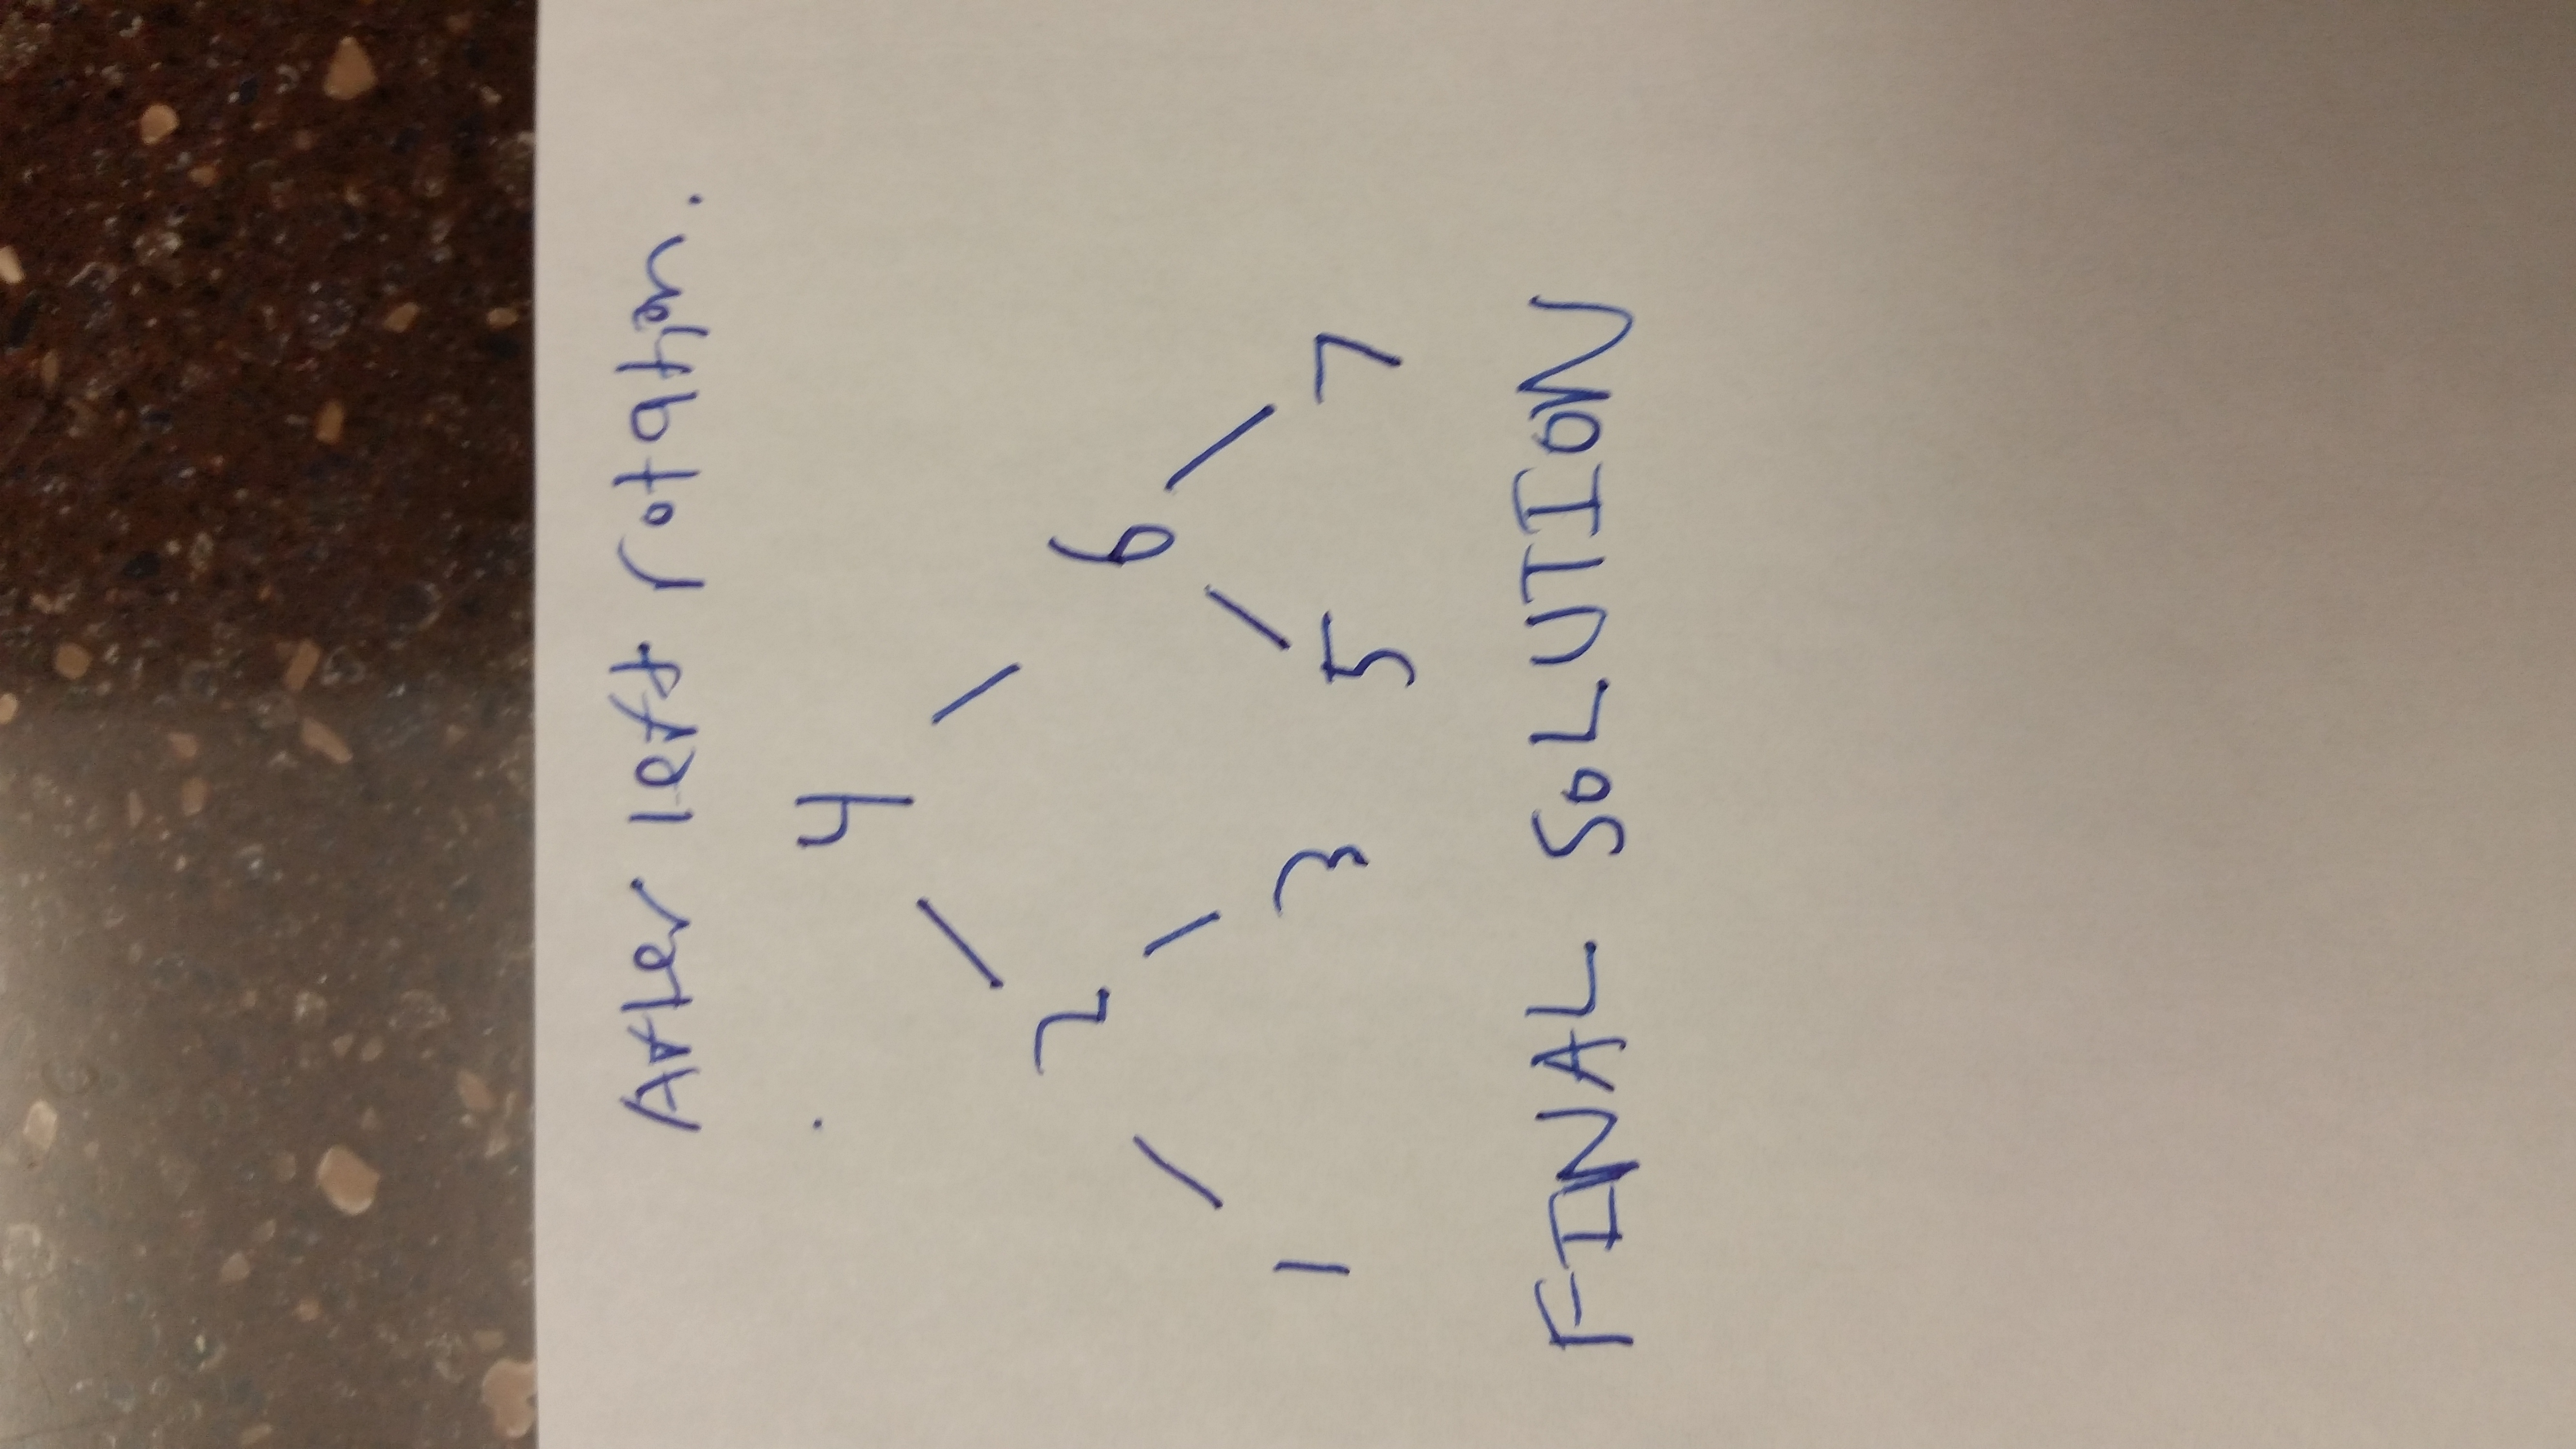 After left rotation.
4
2 6
1 3 5 7
FINAL SOLUTION